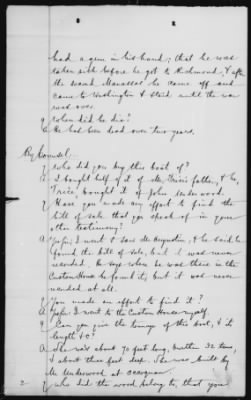 had a gun in his hand; that he was
taken sick before he got to Richmond, & after
the second Manassas he came off and
came to Washington & staid until the war
was over.
Q When did he die?
A He has been dead over two years.
By Counsel.
Q Who did you buy this boat of?
A I bought half of it of Mr. Price's father, & he,
Price bought it of John Underwood.
Q Have you made any effort to find the
bill of sale that you speak of in your
other testimony?
A Yes sir; I went & saw Mr. & he said he
found the bill of sale, but it was never
recorded. He says when he was there in the
Custom House he found it, but it was never
recorded at all.
Q You made an effort to find it?
A Yes sir; I went to the Custom House myself.
Q Can you give the tonnage of this boat, & it
length &c?
A She was about 70 feet long, burthen 32 tons,
& about three feet deep. She was built by
Mr Underwood at Occoquan.
Q Who did the wood belong to, that you
2